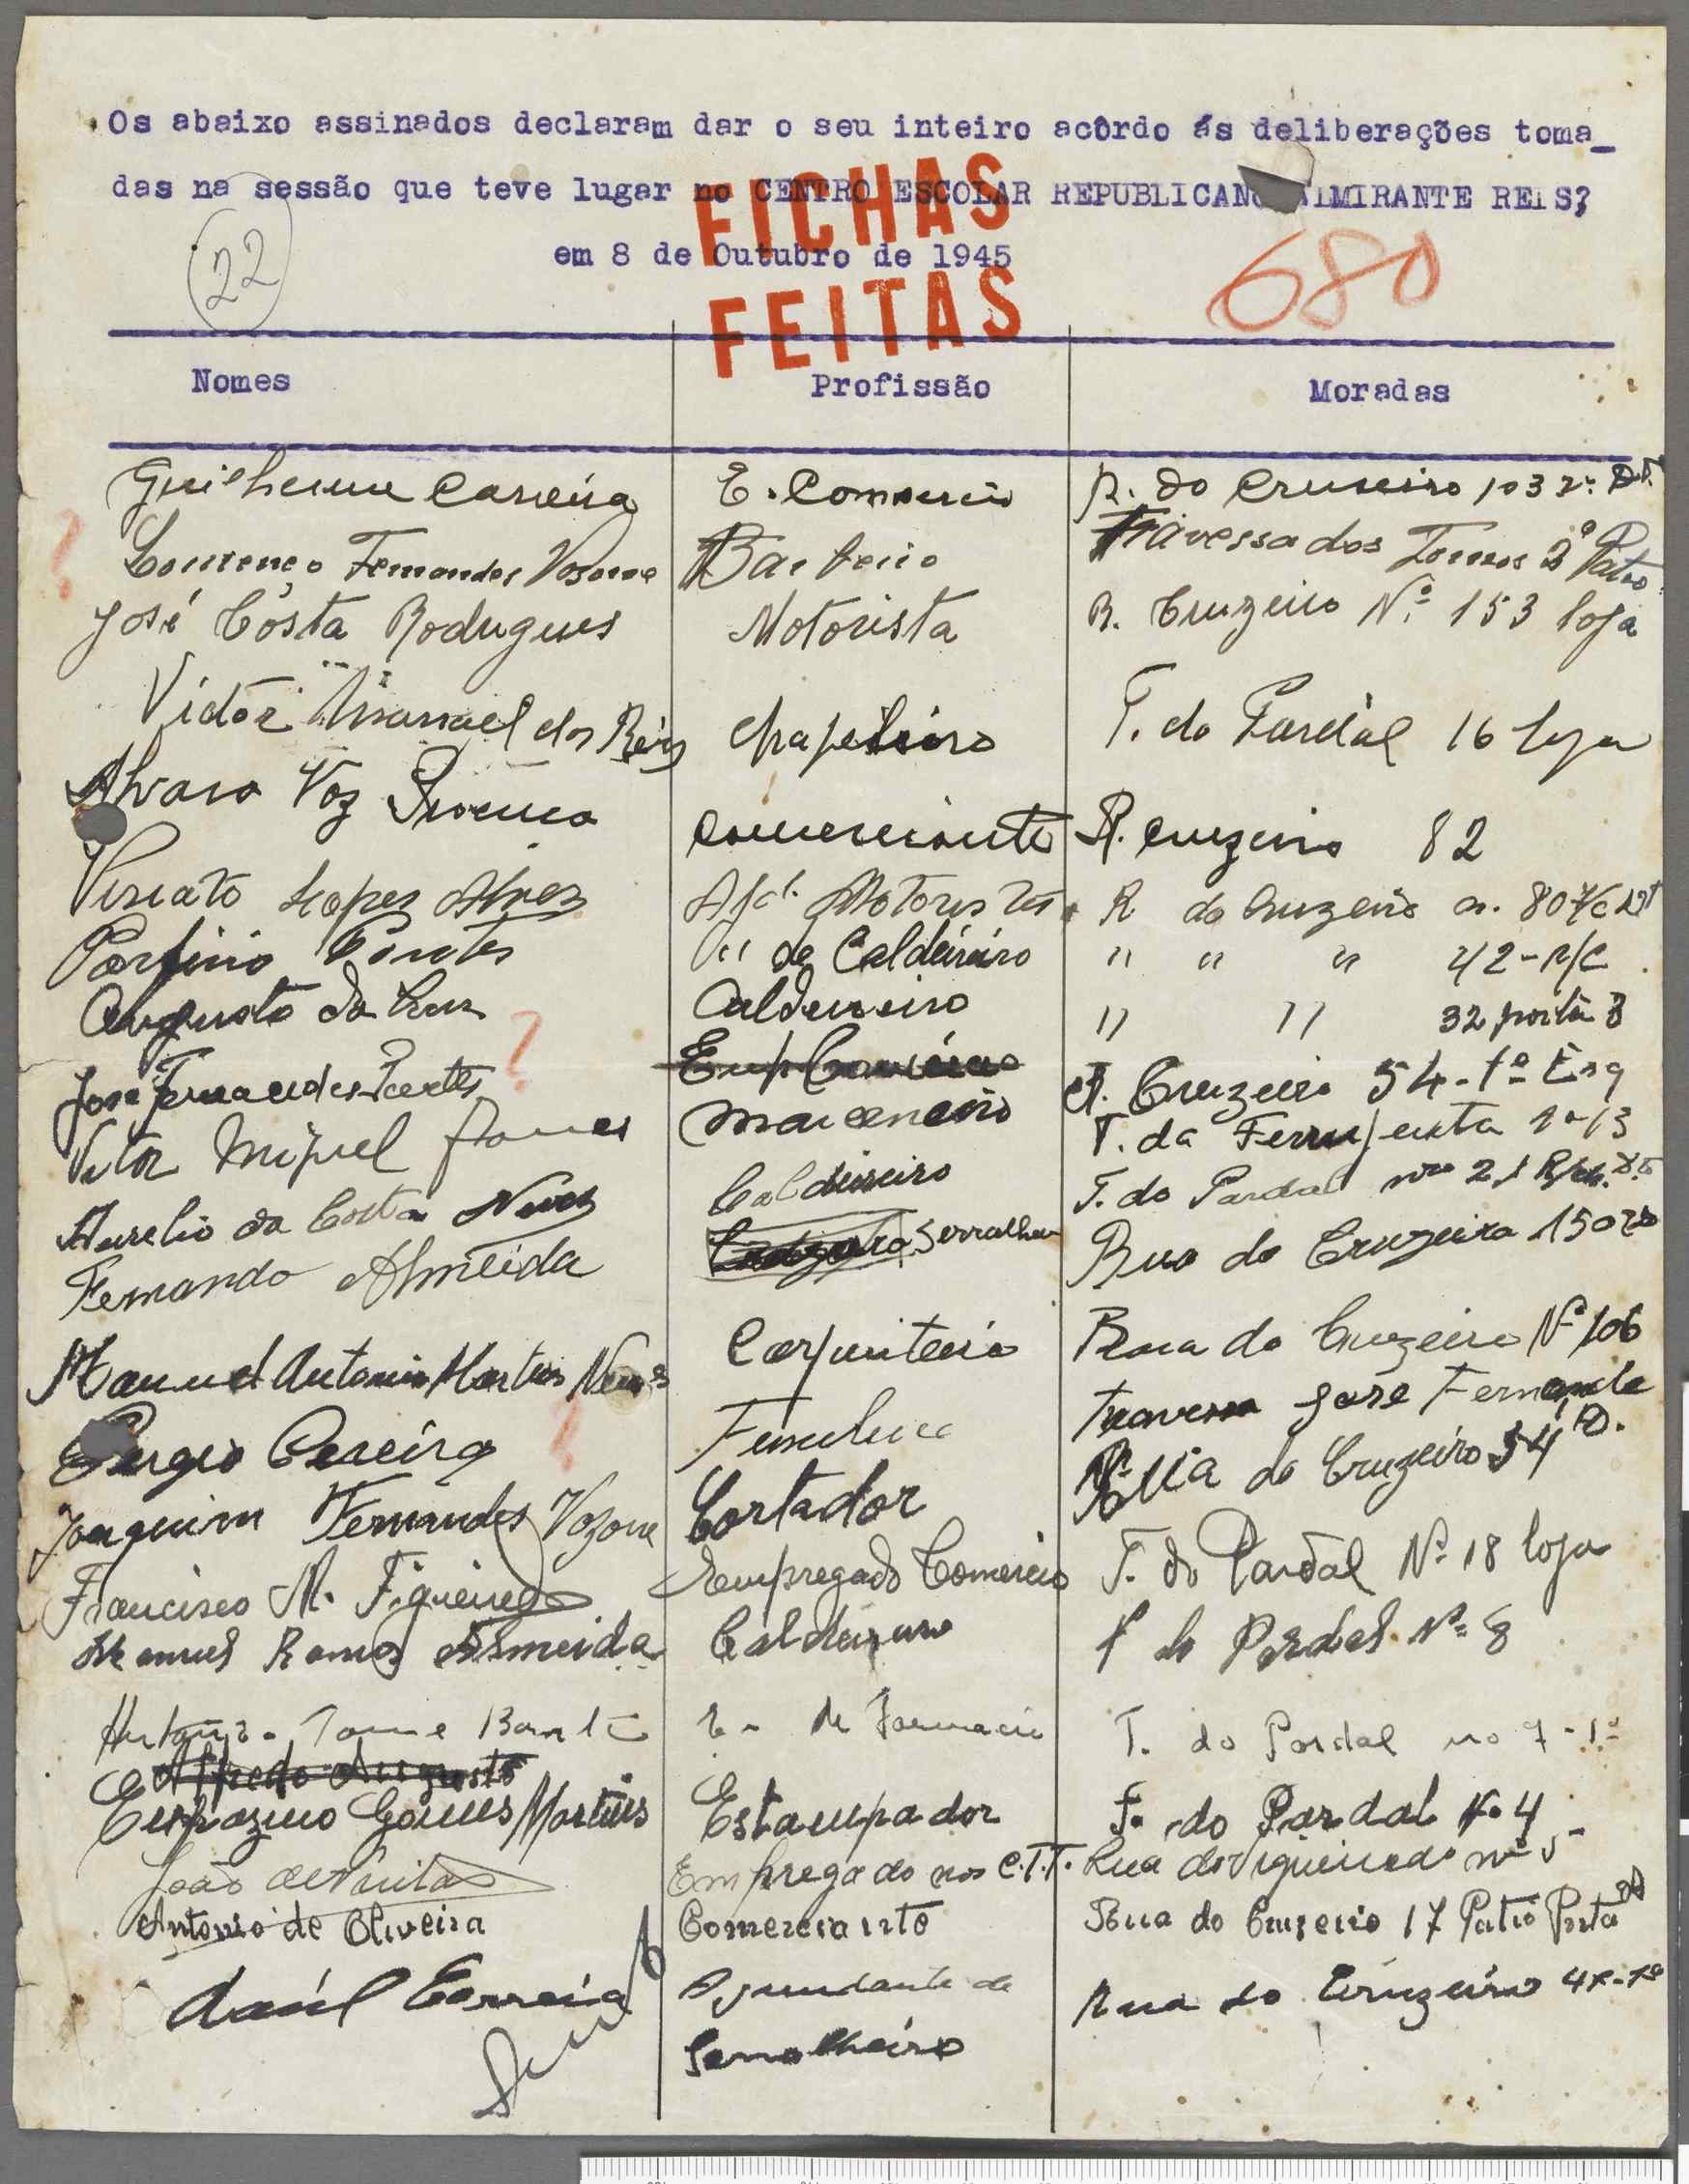 Os abaixo assinados declaram dar o seu inteiro acôrdo ás deliberações toma_
das na sessão que teve lugar no CENTRO ESCOLAR REPUBLICANO ALMIRANTE REIS,
em 8 de Outubro de 1945
FICHAS
FEITAS
22
680
Nomes Profissão Moradas
Guilherme Carreira E. Comercio R. do Cruseiro 103 2º Dt.
Lourenço Fernandes Vozone Barbeiro Travessa dos 2º Patio
José Costa Rodrigues Motorista R. Cruzeiro Nº 153 loja
Victor Manuel dos Reis chapeleiro T. do Pardal 16 loja
Alvaro Vaz Proença comerciante R. cruzeiro 82
Viriato Lopes Alves Ajd. Motorista R do Cruzeiro n. 80 r/c Dt
Porfirio Pontes " de Caldeireiro " " " 42-r/c
Augusto da Luz Caldeireiro " " 32 porta 8
José Fernandes R. Cruzeiro 54-1º Esq
Vitor Miguel marceneiro T. da 13
Aurelio da Costa Neves Caldeireiro T. do Pardal nº 21 R/ch. Dt.
Fernando Almeida Serralheiro Rua do Cruzeiro 150
Manuel Antonio Martins Neves Carpinteiro Rua do Cruzeiro Nº 106
Sergio Pereira Travessa José Fernandes
Joaquim Fernandes Vozone Cortador Rua do Cruzeiro 54 D.
Francisco M. Figueiredo Empregado Comercio T. do Pardal Nº 18 loja
Manuel Ramos Almeida Caldeireiro T do Pardal Nº 8
E. de Farmacia T. do Pardal nº 7-1º
Alfredo Augusto
Eufrazino Gomes Martins Estampador T. do Pardal Nº 4
João de Freitas Empregado nos C.T.T. Rua do Figueiredo nº 5
Antonio de Oliveira Comerciante Rua do Cruzeiro 17 Patio Porta
Raúl Correia Ajundante de Rua do Cruzeiro
Serralheiro